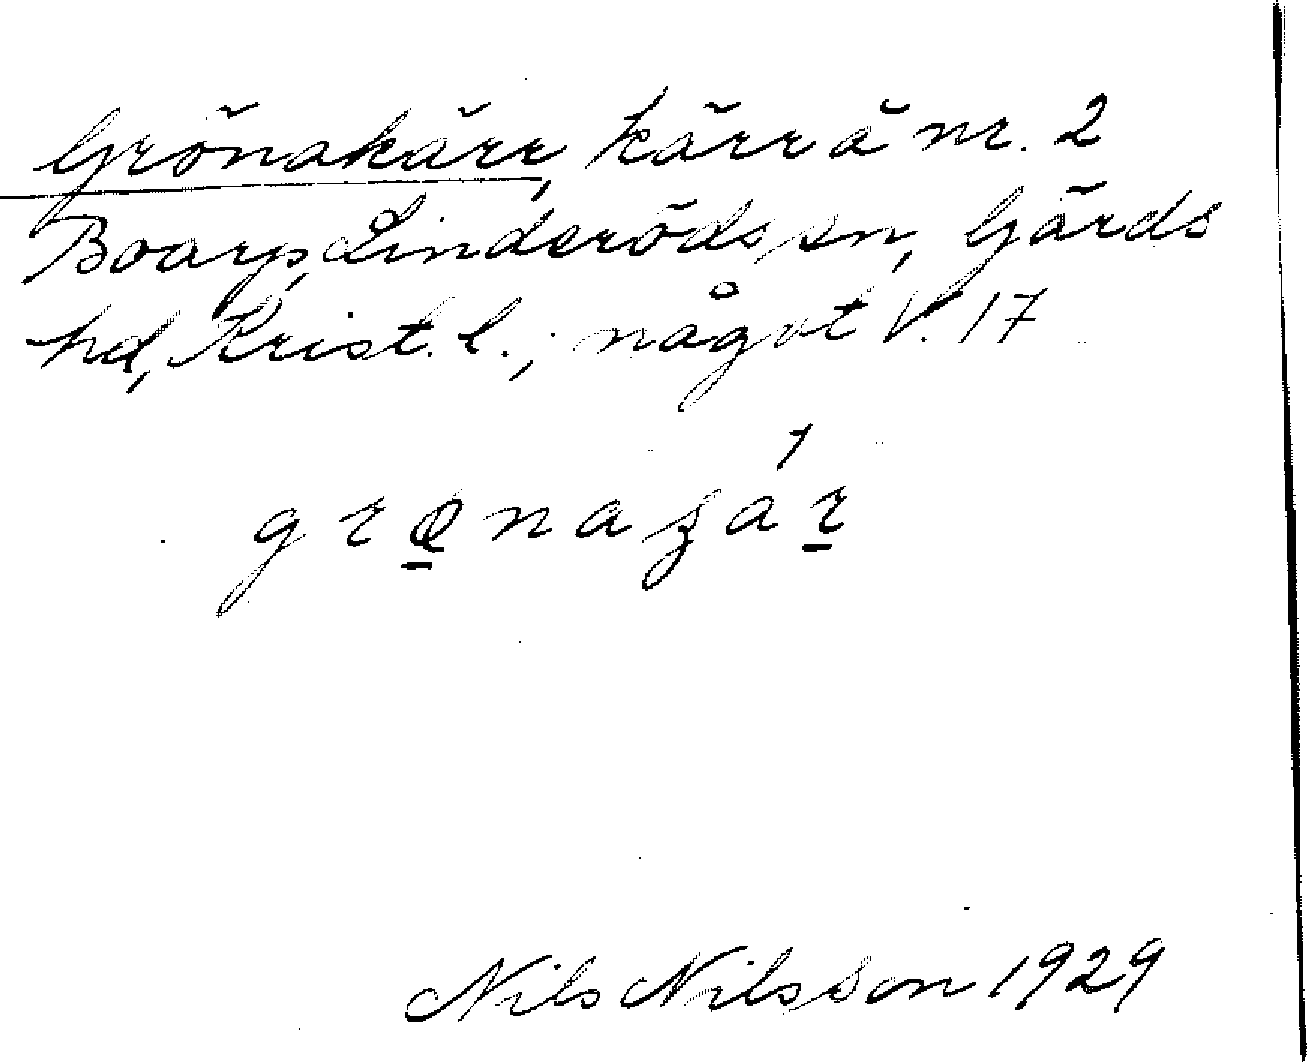 Grönakärr, kärr å nr. 2
Boarp, Linderöds sn, Gärds
hd, Krist. l.; något V. 17
grønaʒár
Nils Nilsson 1929